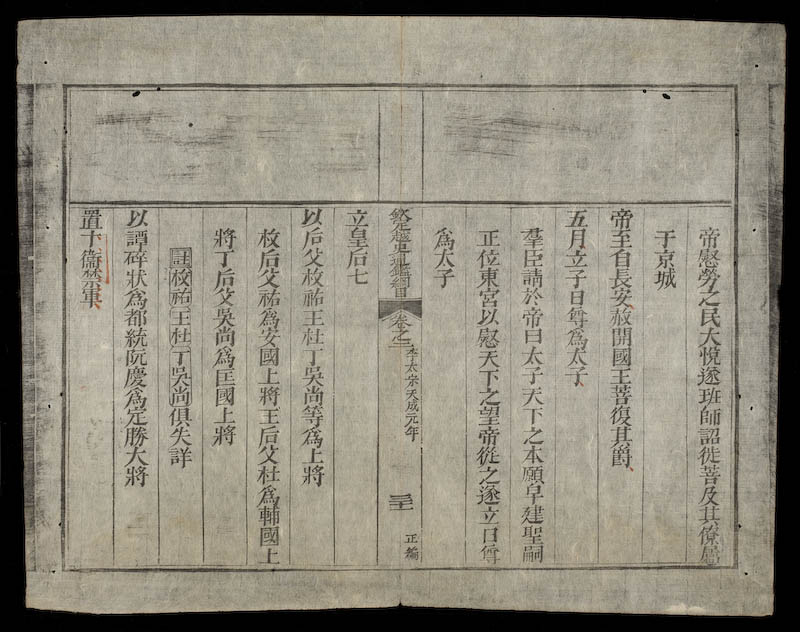 帝慰勞之民大悅遂班師詔徙菩及其僚屬
于京城
帝至自長安赦開國王菩復其爵
五月立子日尊爲太子
羣臣請於帝曰太子天下之本願早建聖嗣
正位東宮以慰天下之望帝從之遂立日尊
爲太子
欽定越史通鑑綱目 卷之二 李太宗天成元年 三十一 正編
立皇后七
以后父枚祐王杜丁吳尚等爲上將
枚后父祐爲安國上將王后父杜爲輔國上
將丁后父吳尚爲匡國上將
註枚祐王杜丁吳尚俱失詳
以譚碎狀爲都統阮慶爲定勝大將
置十衞禁軍